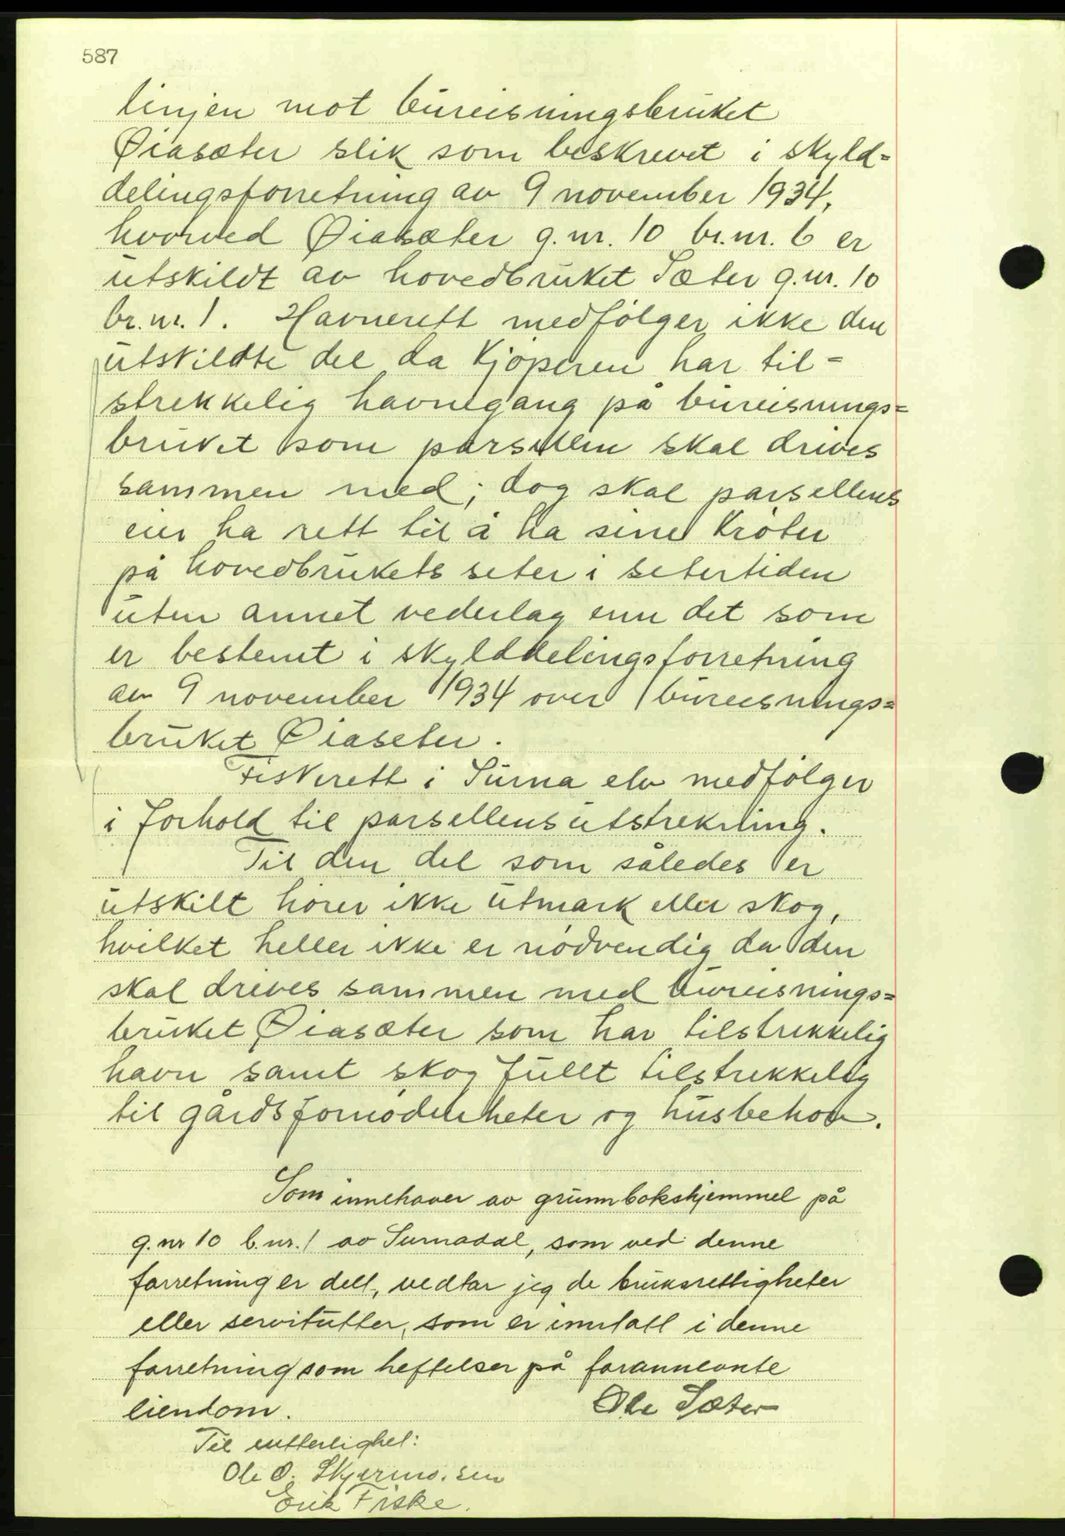 587
linjen mot bureisningsbruket
Øiasæter slik som beskrevet i skyld=
delingsforretning av 9 november 1934,
hvorved Øiasæter g.nr. 10 br.nr. 6 er
utskildt av hovedbruket Sæter g.nr. 10
br.nr. 1. Havnerett medfølger ikke den
utskildte del da kjøperen har til=
strekkelig havnegang på bureisnings=
bruket som parsellen skal drives
sammen med; dog skal parsellens
eier ha rett til å ha sine krøter
på hovedbrukets seter i setertiden
uten annet vederlag enn det som
er bestemt i skylddelingsforretning
av 9 november 1934 over bureisnings=
bruket Øiaseter.
Fiskerett i Surna elv medfølger
i forhold til parsellens utstrekning.
Til den del som således er
utskilt hører ikke utmark eller skog,
hvilket heller ikke er nødvendig da den
skal drives sammen med bureisnings=
bruket Øiasæter som har tilstrekkelig
havn samt skog fullt tilstrekkelig
til gårdsfornødenheter og husbehov.
Som innehaver av grunnbokshjemmel på
g.nr 10 b.nr. 1 av Surnadal, som ved denne
forretning er delt, vedtar jeg de bruksrettigheter
eller servitutter, som er inntatt i denne
forretning som heftelser på forannevnte
eiendom. Ole Sæter
Til vitterlighet:
Ole O. Skjermo. sen
Erik Fiske.